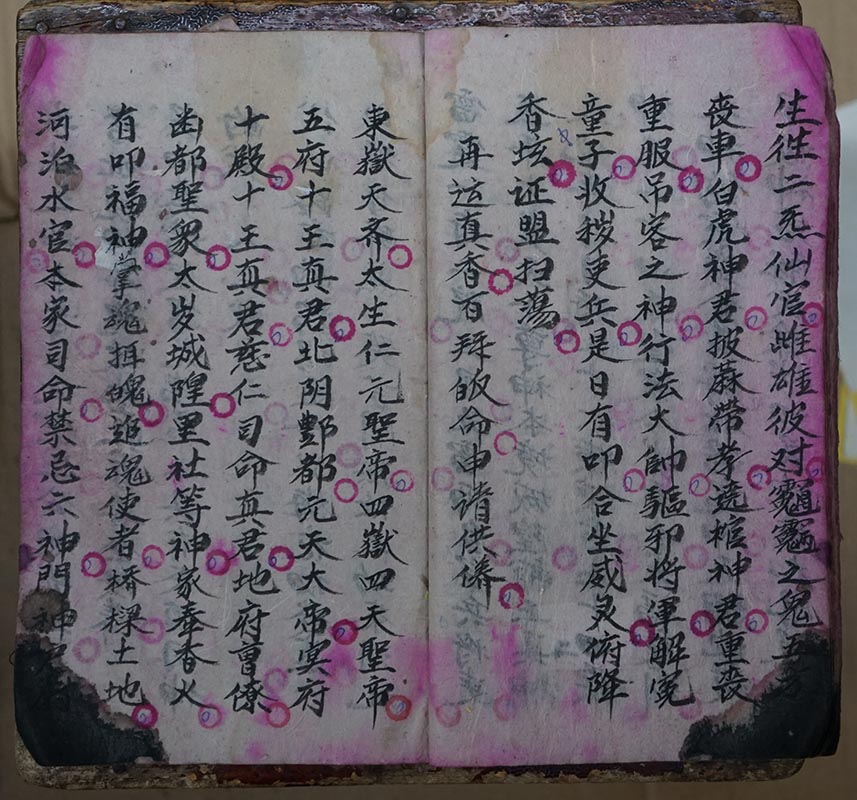 生往二炁仙官雌雄彼对魖魖之鬼五方
丧車白虎神君披蔴帶孝遶棺神君重丧
重服吊客之神行法大帥驅邪将軍解冤
童子收穢吏兵是日有叩合坐威灵俯降
香坛证盟扫蕩
再运真香百拜皈命申请供俻
東嶽天齐太生仁元聖帝四嶽四天聖帝
五府十王真君北阴酆都元天大帝冥府
十殿十王真君慈仁司命真君地府曹僚
凾都聖衆太岁城隍里社等神家奉香火
有叩福神掌魂挕魄追魂使者桥樑土地
河泊水官本家司命禁忌六神門神